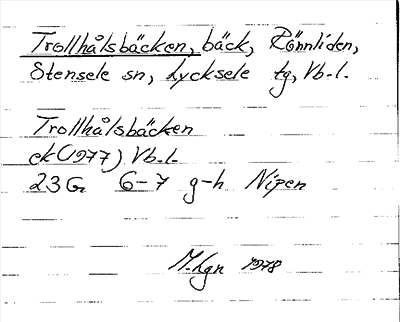 Trollhålsbäcken, bäck, Rönnliden,
Stensele sn, Lycksele tg, Vb.l.
Trollhålsbäcken
ek(1977) Vb.l.
23G 6-7 g-h Nipen
M.Lgn 1978